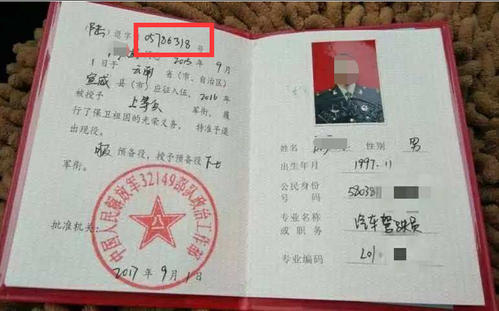 (陆)退字05786318号
2015年9月
1日于云南省(市、自治区)
宣威县(市)应征入伍,2016年
被授予上等兵军衔,履
行了保卫祖国的光荣义务,特准予退
出现役。
服预备役,授予预备役下士
军衔。
批准机关:
中国人民解放军32149部队政治工作部
2017年9月1日
姓名
性别 男
出生年月 1997.11
公民身份
号码 58038
专业名称
或职务 汽车驾驶员
专业编码 201